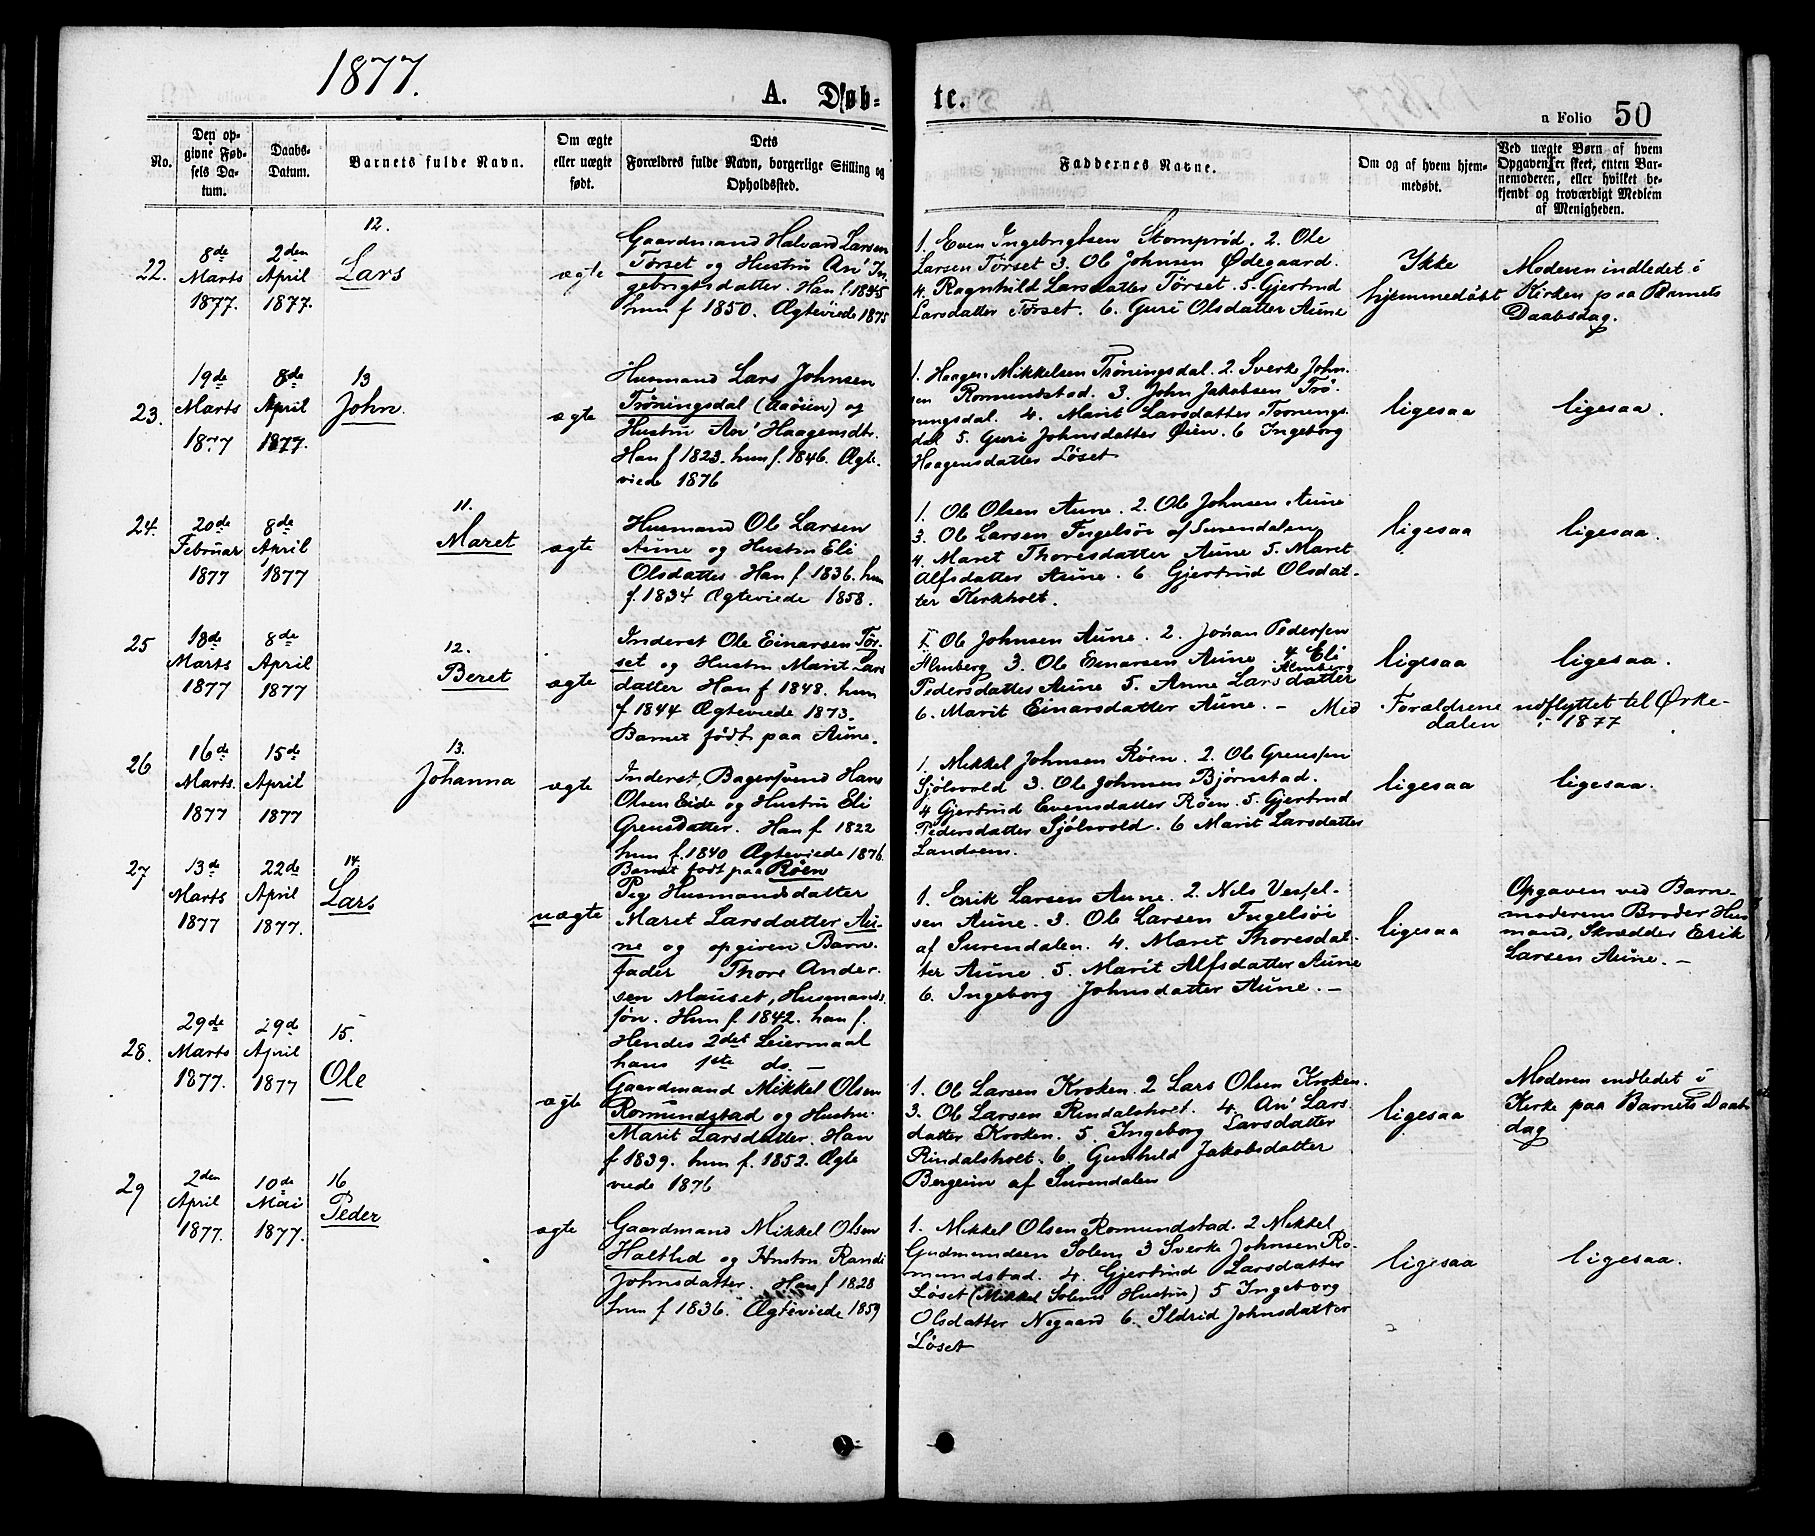 1877.
A. Døb-
te.
a Folio 50
No.
Den op-
givne Fød-
sels Da-
tum.
Daabs-
Datum.
Barnets fulde Navn.
Om ægte
eller uægte
født.
Dets
Forældres fulde Navn, borgerlige Stilling og
Opholdssted.
Faddernes Navne.
Om og af hvem hjem-
medøbt.
Ved uægte Børn af hvem
Opgaven er skeet, enten Bar-
nemoderen, eller hvilket be-
kjendt og troværdigt Medlem
af Menigheden.
22.
8de
Marts
1877.
2den
April
1877.
12.
Lars
ægte
Gaardmand Halvard Larsen
Tørset og Hustru An' In-
gebrigtsdatter. Han f. 1845
hun f 1850. Ægteviede 1875
1. Even Ingebrigtsen Stomprød. 2. Ole
Larsen Tørset 3. Ole Johnsen Ødegaard.
4. Ragnhild Larsdatter Tørset. 5. Gjertrud
Larsdatter Tørset. 6. Guri Olsdatter Aune
Ikke
hjemmedøbt
Moderen indledet i
Kirken paa Barnets
Daabsdag.
23.
19de
Marts
1877
8de
April
1877.
13
John.
ægte
Husmand Lars Johnsen
Trøningsdal (Aaøien) og
Hustru An' Haagensdtr.
Han f 1823. hun f. 1846. Ægte-
viede 1876
1. Haagen Mikkelsen Trøningsdal. 2. Sverke John-
sen Romundstad. 3. John Jakobsen Trø-
ningsdal. 4. Marit Larsdatter Trønings-
dal 5. Guri Johnsdatter Øien. 6 Ingeborg
Haagensdatter Løset
ligesaa
ligesaa.
24.
20de
Februar
1877
8de
April
1877
11.
Maret
ægte
Husmand Ole Larsen
Aune og Hustru Eli
Olsdatter. Han f. 1836. hun
f. 1834 Ægteviede 1858.
1. Ole Olsen Aune. 2 Ole Johnsen Aune
3. Ole Larsen Fugelsøi af Surendalen
4. Maret Thoresdatter Aune 5. Maret
Alfsdatter Aune. 6 Gjertrud Olsdat-
ter Kirkholt.
ligesaa
ligesaa.
25
18de
Marts
1877
8de
April
1877
12.
Beret
ægte
Inderst Ole Einarsen Tør-
set og Hustru Marit Lars
datter Han f 1848. hun
f. 1844 Ægteviede 1873.
Barnet født paa Aune.
1. Ole Johnsen Aune. 2. Johan Pedersen
Almberg 3. Ole Einarsen Aune 4. Eli
Pedersdatter Aune 5. Anne Larsdatter Almberg
6. Marit Einarsdatter Aune. – Med Forældrene udflyttet til Ørke-
dalen i 1877
ligesaa
ligesaa.
26
16de
Marts.
1877
15de
April
1877
13.
Johanna
ægte
Inderst, Bagersvend Hans
Olsen Eide og Hustru Eli
Grensdatter. Han f. 1822
hun f. 1840 Ægteviede 1876.
Barnet født paa Røen
1. Mikkel Johnsen Røen. 2. Ole Grensen
Sjølsvold 3. Ole Johnsen Bjørnstad.
4 Gjertrud Evensdatter Røen. 5. Gjertrud
Pedersdatter Sjølsvold. 6 Marit Larsdatter
Landsem.
ligesaa
ligesaa.
27
13de
Marts
1877
22de
April
1877.
14.
Lars
uægte
Pig Husmandsdatter
Maret Larsdatter Au-
ne og opgiven Barn-
fader Thore Ander-
sen Mauset, Husmands-
søn. Hun f. 1842. han f.
Hendes 2det Leiermaal
hans 1ste do. –
1. Erik Larsen Aune. 2. Nils Vessel-
sen Aune. 3. Ole Larsen Fugelsøi
af Surendalen. 4. Maret Thoresdat-
ter Aune. 5. Marit Alfsdatter Aune
6. Ingeborg Johnsdatter Aune. –
ligesaa
Opgaven ved Barne-
moderens Broder Hus-
mand, Skrædder Erik
Larsen Aune. –
28.
29de
Marts
1877.
29d
April
1877
15.
Ole
ægte
Gaardmand Mikkel Olsen
Romundstad og Hustru
Marit Larsdatter. Han
f 1839. hun f. 1852. Ægte
viede 1876
1. Ole Larsen Kroken. 2 Lars Olsen Kroken.
3. Ole Larsen Rindalsholt. 4. An' Lars-
datter Kroken. 5. Ingeborg Larsdatter
Rindalsholt. 6 Gunhild Jakobsdatter
Bergeim af Surendalen
ligesaa
Moderen indledet i
Kirke paa Barnets Daabs
dag
29
2den
April
1877.
10de
Mai
1877.
16
Peder
ægte
Gaardmand Mikkel Olsen
Haltlid og Hustru Randi
Johnsdatter. Han f 1828
hun f 1836. Ægteviede 1859
1. Mikkel Olsen Romundstad. 2 Mikkel
Gudmundsen Solem 3 Sverke Johnsen Ro-
mundstad. 4. Gjertrud Larsdatter
Løset (Mikkel Solems Hustru) 5 Ingeborg
Olsdatter Negaard 6. Ildrid Johnsdatter
Løset
ligesaa
ligesaa.